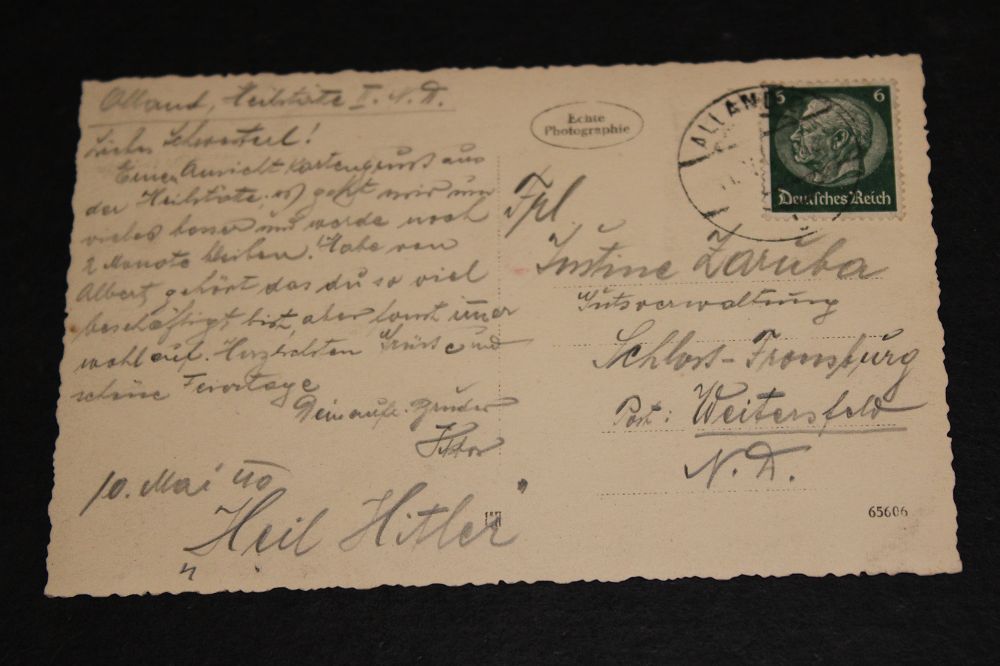 Alland, Heilstäte I. N.D.
Liebes Schwesterl!
Einen Ansicht Kartengruss aus
der Heilstäte. es geht mir um
vieles besser und werde noch
2 Monate bleiben. Habe von
Albert gehört das du so viel
beschäftigt bist, aber sonst immer
wohlauf. Herzlichsten Grüsse und
schöne Feiertage
Dein aufr. Bruder
10. Mai 40
"Heil Hitler"
Echte
Photographie
ALLAND
5 6
Deutsches Reich
Frl
Justine Zaruba
Gutsverwaltung
Schloss-Fronsburg
Post: Weitersfeld
N.D.
65606